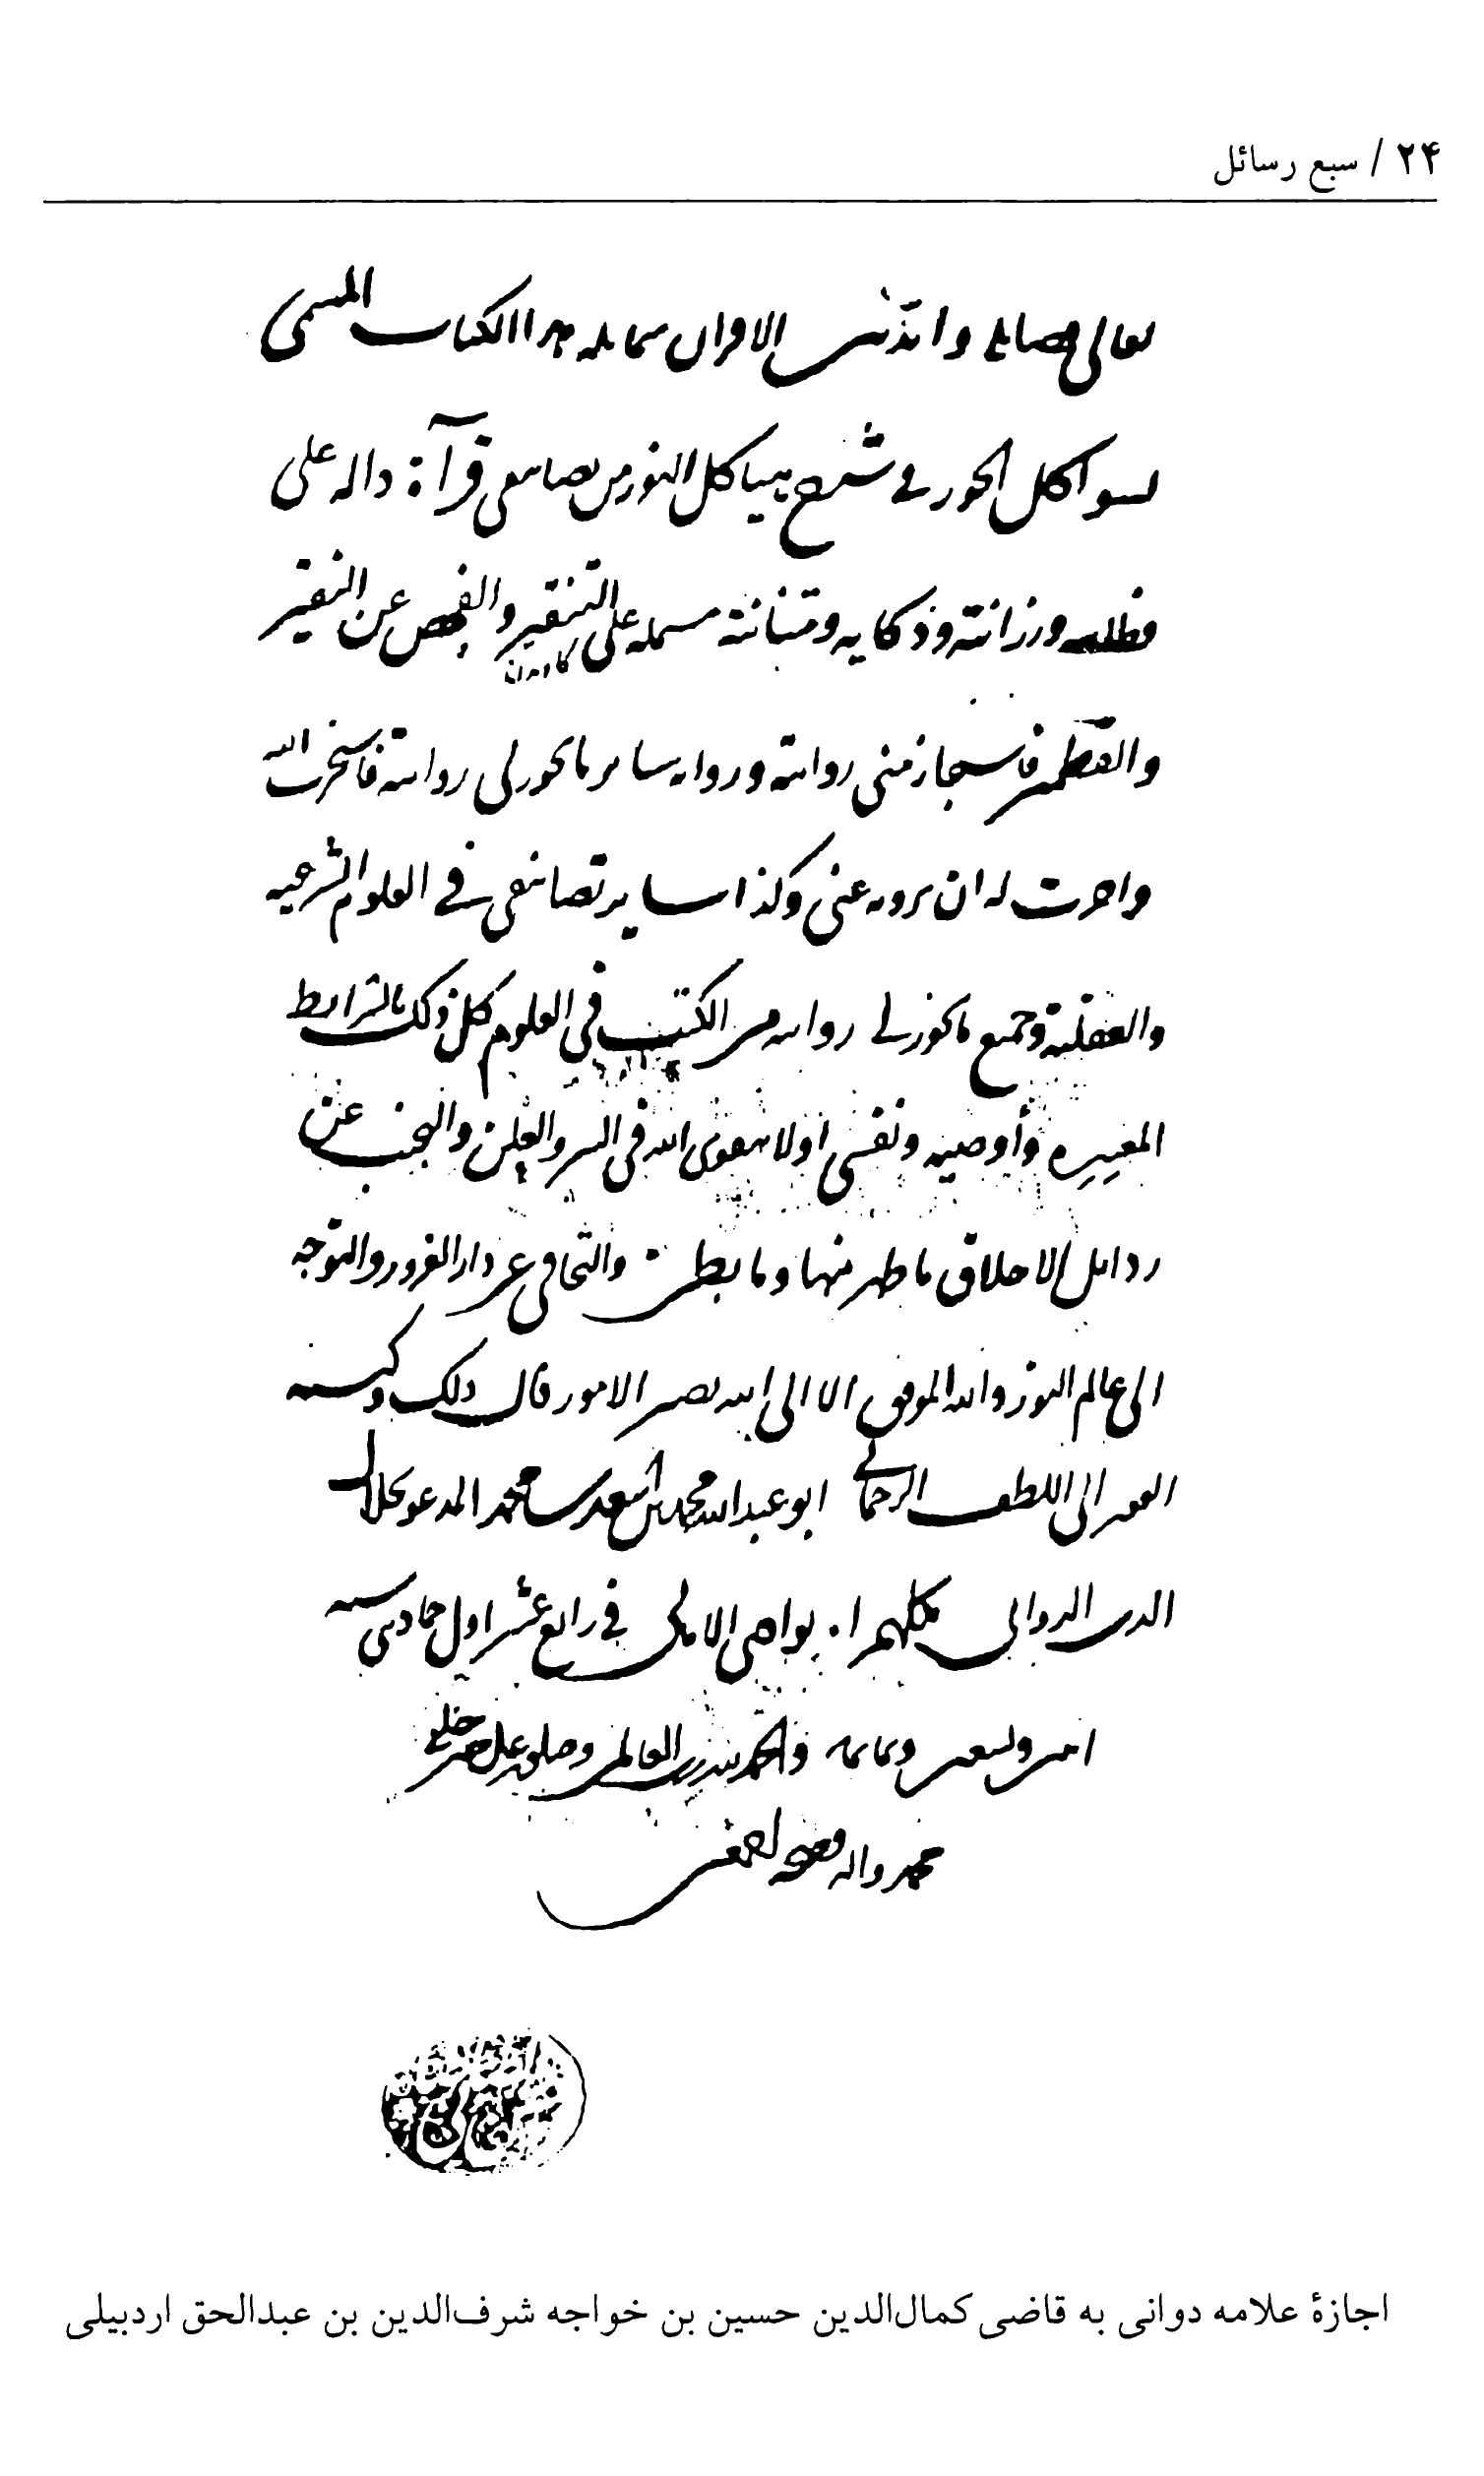 ۲۴ / سبع رسائل
تعالى فضايله واتذنت الاقران شمايله هذا الكتاب المسمى
بشواكل الحور فى شرح هياكل النور من تصانيفى قراءة دالة على
فطانته ورزانته وذكايه ومتانته مشتملة على التنقير والفحص عن النقير
والقطمير فاستجاز منى روايته ورواية ساير ما يجوز لى روايته فاستخرت الله
واجزت له ان يرويه عنى وكذا ساير تصانيفى فى العلوم الشرعيه
والعقلية وجميع ما يجوز لى روايته من الكتب فى العلوم كل ذلك بالشرايط
المعتبره وأوصيه ونفسى اولا بتقوى الله فى السر والعلن والتجنب عن
رذايل الاخلاق ما ظهر منها وما بطن والتجافى عن دار الغرور والتوجه
الى عالم النور والله الموفق الا الى الله تصير الامور قال ذلك وكتبه
الفقير الى اللطف الرحمانى ابو عبدالله محمد بن اسعد بن محمد المدعو بجلال
الدين الدوانى ملكهم الله نواصى الامانى فى رابع عشر اول جماديى سنه
اثنين وتسعين وثمانمايه والحمد لله رب العالمين وصلى على خير خلقه
محمد واله وصحبه اجمعين
اجازۀ علامه دوانی به قاضی کمال‌الدین حسین بن خواجه شرف‌الدین بن عبدالحق اردبیلی